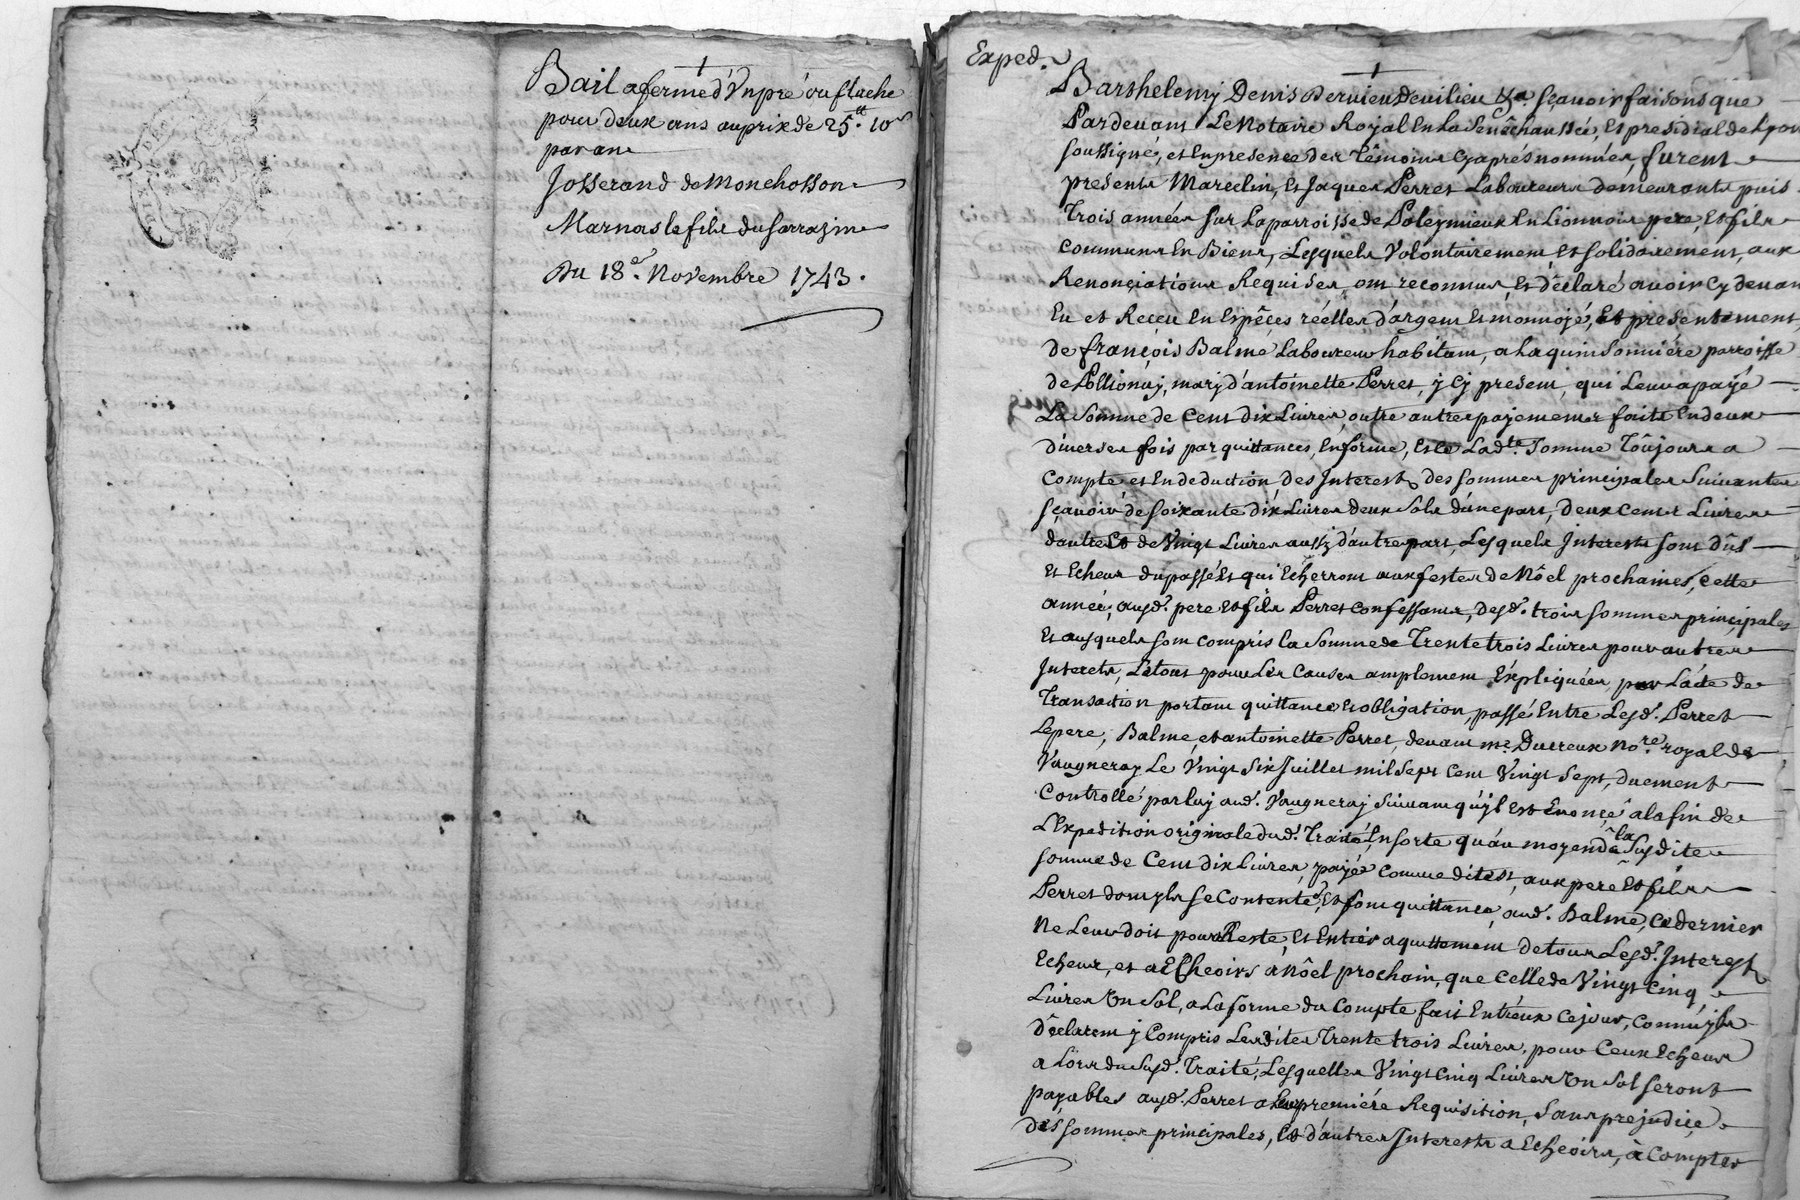 Bail a ferme d'Un pré ou flache
pour deux ans au prix de 25.tt 10s
par an
Josserand de Monchosson
Marnas le fils du Sarrazin
Du 18e. Novembre 1743.
Exped.
Barthelemy Denis Dervieu de Vilieu &a sçavoir faisons que
Pardevant Le Notaire Royal En La Senêchaussée, Et presidial de Lyon
soussigné, et En presence des têmoins cy aprés nommés, furent
presents Mareclin, Et Jaques Perret Laboureurs demeurants puis
Trois années sur La parroisse de Poleymieux En Lionnois pere, Et fils
communs En Biens, Lesquels Volontairement Et solidairement, aux
Renonçiations Requises, ont reconnus, Et Déclaré avoir Cy devant
Eu et Reçeu En Espêçes réelles d'argent Et monnoyé, Et presentement,
de françois Balme Laboureur habitant, a La quinsonniére parroisse
de Pollionay, mary d'antoinette Perret, y Cy present, qui Leur a payé
La Somme de Cent dix Livres, outre autres payements faits En deux
diverses fois par quittances, En forme, Et Ce Lad.te Somme Toûjours a
Compte et En deduction, Des Interest des sommes principales Suivantes
sçavoir de soixante dix Livres deux Sols d'une part, Deux Cents Livres
d'autre Et de Vingt Livres aussy d'autre part, Lesquels Interests sont dûs
Et Echeus du passé Et qui Echerront aux festes de Nôel prochaines, cette
année, ausd. pere Et fils Perret confessants, desd. trois sommes principales
Et ausquels sont compris la Somme de Trente trois Livres pour autres
Interets, Le tout pour Les Causes amplement Expliquées, par L'acte de
Transaction portant quittance Et obligation, passé Entre Lesd. Perret
Le pere, Balme, et antoinette Perret, devant me. Dutreux no.re royal de
Vaugneray Le Vingt Six Juillet mil Sept Cent Vingt Sept, duement
Controllé par luy aud. Vaugneray Suivant qu'yl Est Enonçé a la fin de
L'Expedition originale dud. Traité, En sorte qu'au moyen de la Susdite
somme de Cent dix Livres, payée comme dit est, aux pere Et fils
Perret dont yls se Contente, Et font quittance, aud. Balme, Ce dernier
Ne Leur doit pour Reste, Et Entier aquittement de tous Lesd. Interest
Echeus, et a Echeoirs à Nôel prochain, que Celle de Vingt Cinq
Livres Un Sol, a La forme du Compte fait Entr'eux Ce jour, Comm'yls
Déclarent y Compris Lesdites Trente trois Livres, pour Ceux Echeus
a Lors du Susd. Traité, Lesquelles Vingt Cinq Livres Un Sol seront
payables ausd. Perret a Leur premiére Requisition, Sans prejudice
des sommes principales, Et d'autres Interests a Echeoirs, à Compter